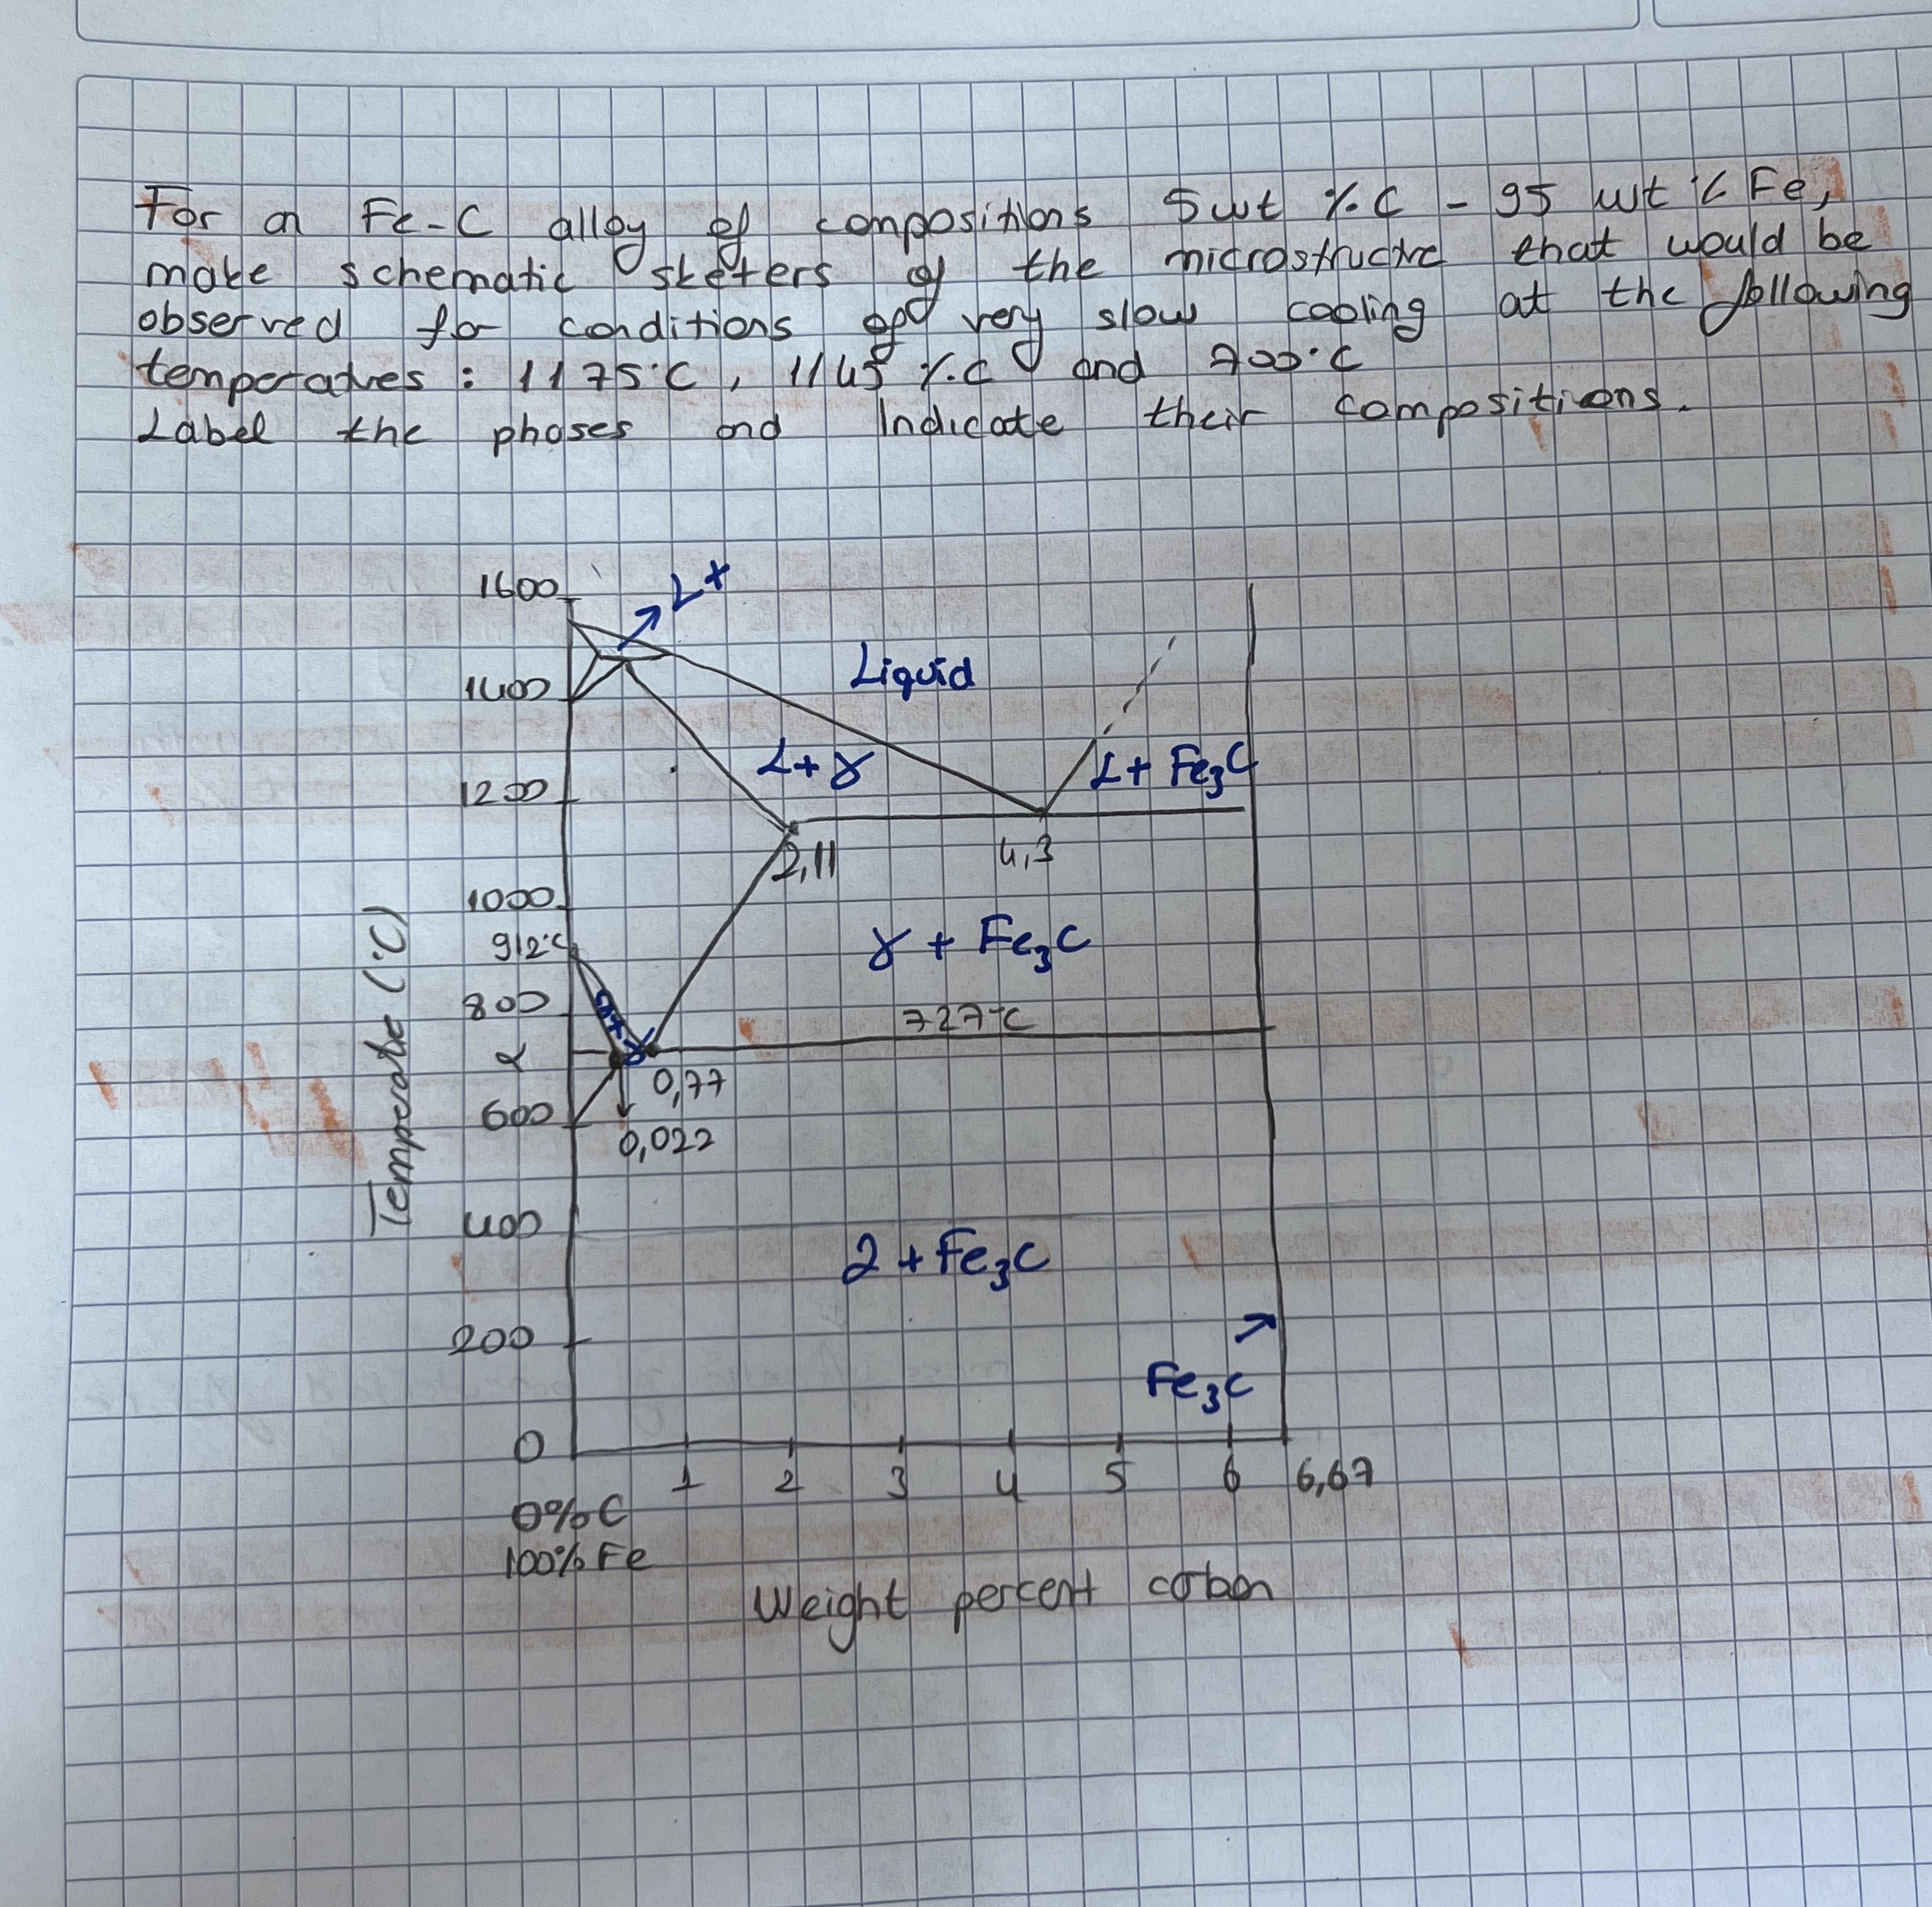 For a Fe-C alloy of compositions 5wt %C - 95 wt % Fe,
make schematic sketers of the microstructre that would be
observed for conditions of very slow cooling at the following
temperatures : 1175°C, 1145 %.C and 700°C
Label the phases and Indicate their compositions.
1600
L+
Liquid
1400
L+γ
L+ Fe3C
1200
2,11
4,3
1000
912°C
γ + Fe3C
800
α+γ
727°C
α
0,77
600
0,022
Temperature (°C)
400
2 + Fe3C
200
Fe3C
0
1 2 3 4 5 6 6,67
0% C
100% Fe
Weight percent carbon